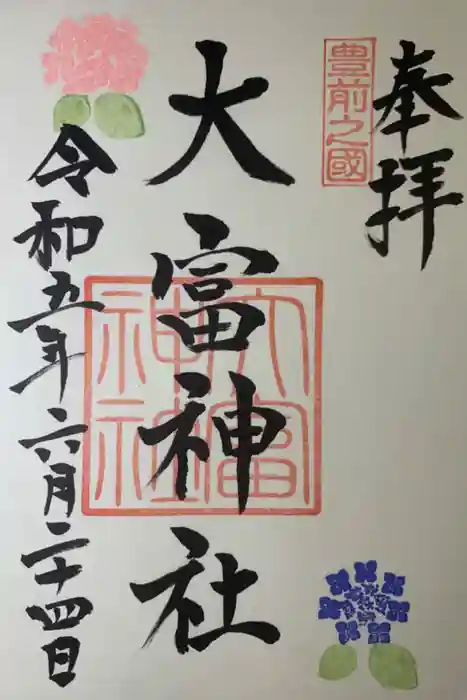 奉拝
豊前之國
大富神社
大富神社
令和五年六月二十四日